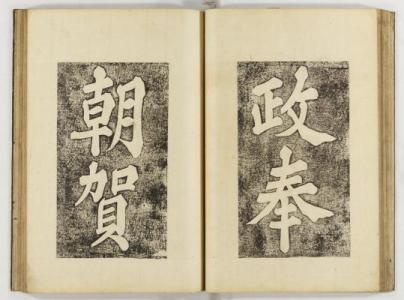 政奉
朝賀